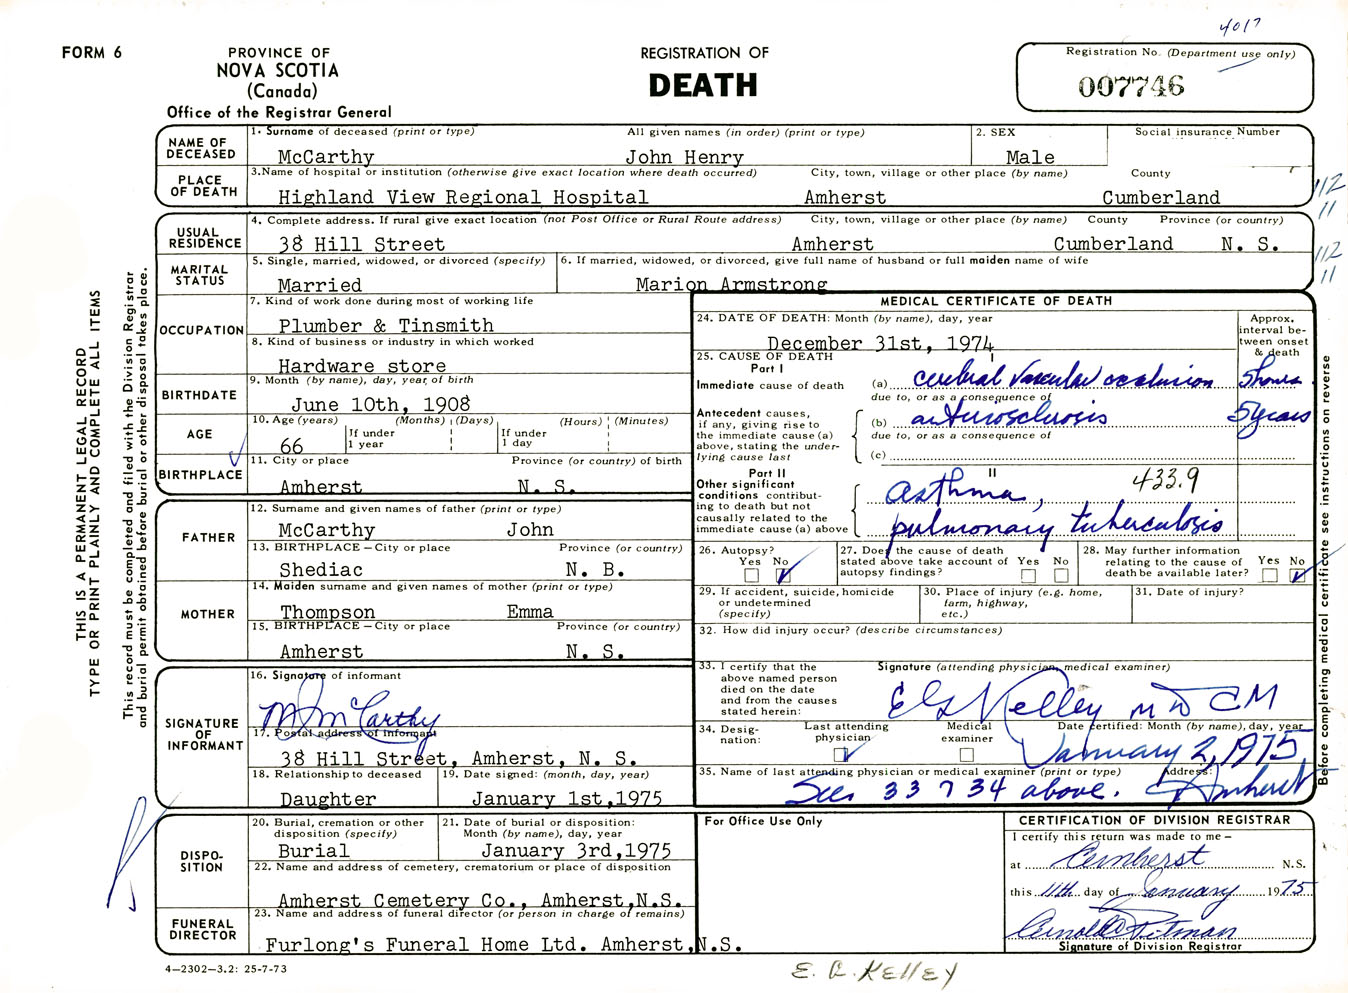 4017
FORM 6
PROVINCE OF
NOVA SCOTIA
(Canada)
Office of the Registrar General
REGISTRATION OF
DEATH
Registration No. (Department use only)
007746
NAME OF DECEASED
1. Surname of deceased (print or type) All given names (in order) (print or type) 2. SEX Social insurance Number
McCarthy John Henry Male
PLACE OF DEATH
3.Name of hospital or institution (otherwise give exact location where death occurred) City, town, village or other place (by name) County
Highland View Regional Hospital Amherst Cumberland
112
11
USUAL RESIDENCE
4. Complete address. If rural give exact location (not Post Office or Rural Route address) City, town, village or other place (by name) County Province (or country)
38 Hill Street Amherst Cumberland N. S.
112
11
MARITAL STATUS
5. Single, married, widowed, or divorced (specify) 6. If married, widowed, or divorced, give full name of husband or full maiden name of wife
Married Marion Armstrong
OCCUPATION
7. Kind of work done during most of working life
Plumber & Tinsmith
8. Kind of business or industry in which worked
Hardware store
BIRTHDATE
9. Month (by name), day, year, of birth
June 10th, 1908
AGE
10. Age (years) (Months) (Days) (Hours) (Minutes)
66 If under 1 year If under 1 day
BIRTHPLACE
11. City or place Province (or country) of birth
Amherst N. S.
FATHER
12. Surname and given names of father (print or type)
McCarthy John
13. BIRTHPLACE – City or place Province (or country)
Shediac N. B.
MOTHER
14. Maiden surname and given names of mother (print or type)
Thompson Emma
15. BIRTHPLACE – City or place Province (or country)
Amherst N. S.
SIGNATURE OF INFORMANT
16. Signature of informant
M J McCarthy
17. Postal address of informant
38 Hill Street, Amherst, N. S.
18. Relationship to deceased 19. Date signed: (month, day, year)
Daughter January 1st,1975
DISPO-
SITION
20. Burial, cremation or other disposition (specify) 21. Date of burial or disposition: Month (by name), day, year
Burial January 3rd,1975
22. Name and address of cemetery, crematorium or place of disposition
Amherst Cemetery Co., Amherst,N.S.
FUNERAL DIRECTOR
23. Name and address of funeral director (or person in charge of remains)
Furlong's Funeral Home Ltd. Amherst,N.S.
MEDICAL CERTIFICATE OF DEATH
24. DATE OF DEATH: Month (by name), day, year
December 31st, 1974
Approx. interval be-
tween onset & death
25. CAUSE OF DEATH
Part I
Immediate cause of death (a) cerebral vascular occlusion 5 hours
due to, or as a consequence of
Antecedent causes, if any, giving rise to the immediate cause (a) above, stating the under-
lying cause last
(b) arteriosclerosis 5 years
due to, or as a consequence of
(c)
Part II
Other significant conditions contribut-
ing to death but not causally related to the immediate cause (a) above
II
Asthma, 433.9
pulmonary tuberculosis
26. Autopsy? Yes No
27. Does the cause of death stated above take account of autopsy findings? Yes No
28. May further information relating to the cause of death be available later? Yes No
29. If accident, suicide, homicide or undetermined (specify)
30. Place of injury (e.g. home, farm, highway, etc.)
31. Date of injury?
32. How did injury occur? (describe circumstances)
33. I certify that the above named person died on the date and from the causes stated herein:
Signature (attending physician, medical examiner)
E G Kelley MD CM
34. Desig-
nation: Last attending physician Medical examiner Date certified: Month (by name), day, year
January 2, 1975
35. Name of last attending physician or medical examiner (print or type) Address:
See 33 7 34 above. Amherst
For Office Use Only
CERTIFICATION OF DIVISION REGISTRAR
I certify this return was made to me –
at Amherst N.S.
this 11th day of January 1975
Arnold Pitman
Signature of Division Registrar
4–2302–3.2: 25-7-73
E. G. KELLEY
THIS IS A PERMANENT LEGAL RECORD
TYPE OR PRINT PLAINLY AND COMPLETE ALL ITEMS
This record must be completed and filed with the Division Registrar
and burial permit obtained before burial or other disposal takes place.
Before completing medical certificate see instructions on reverse